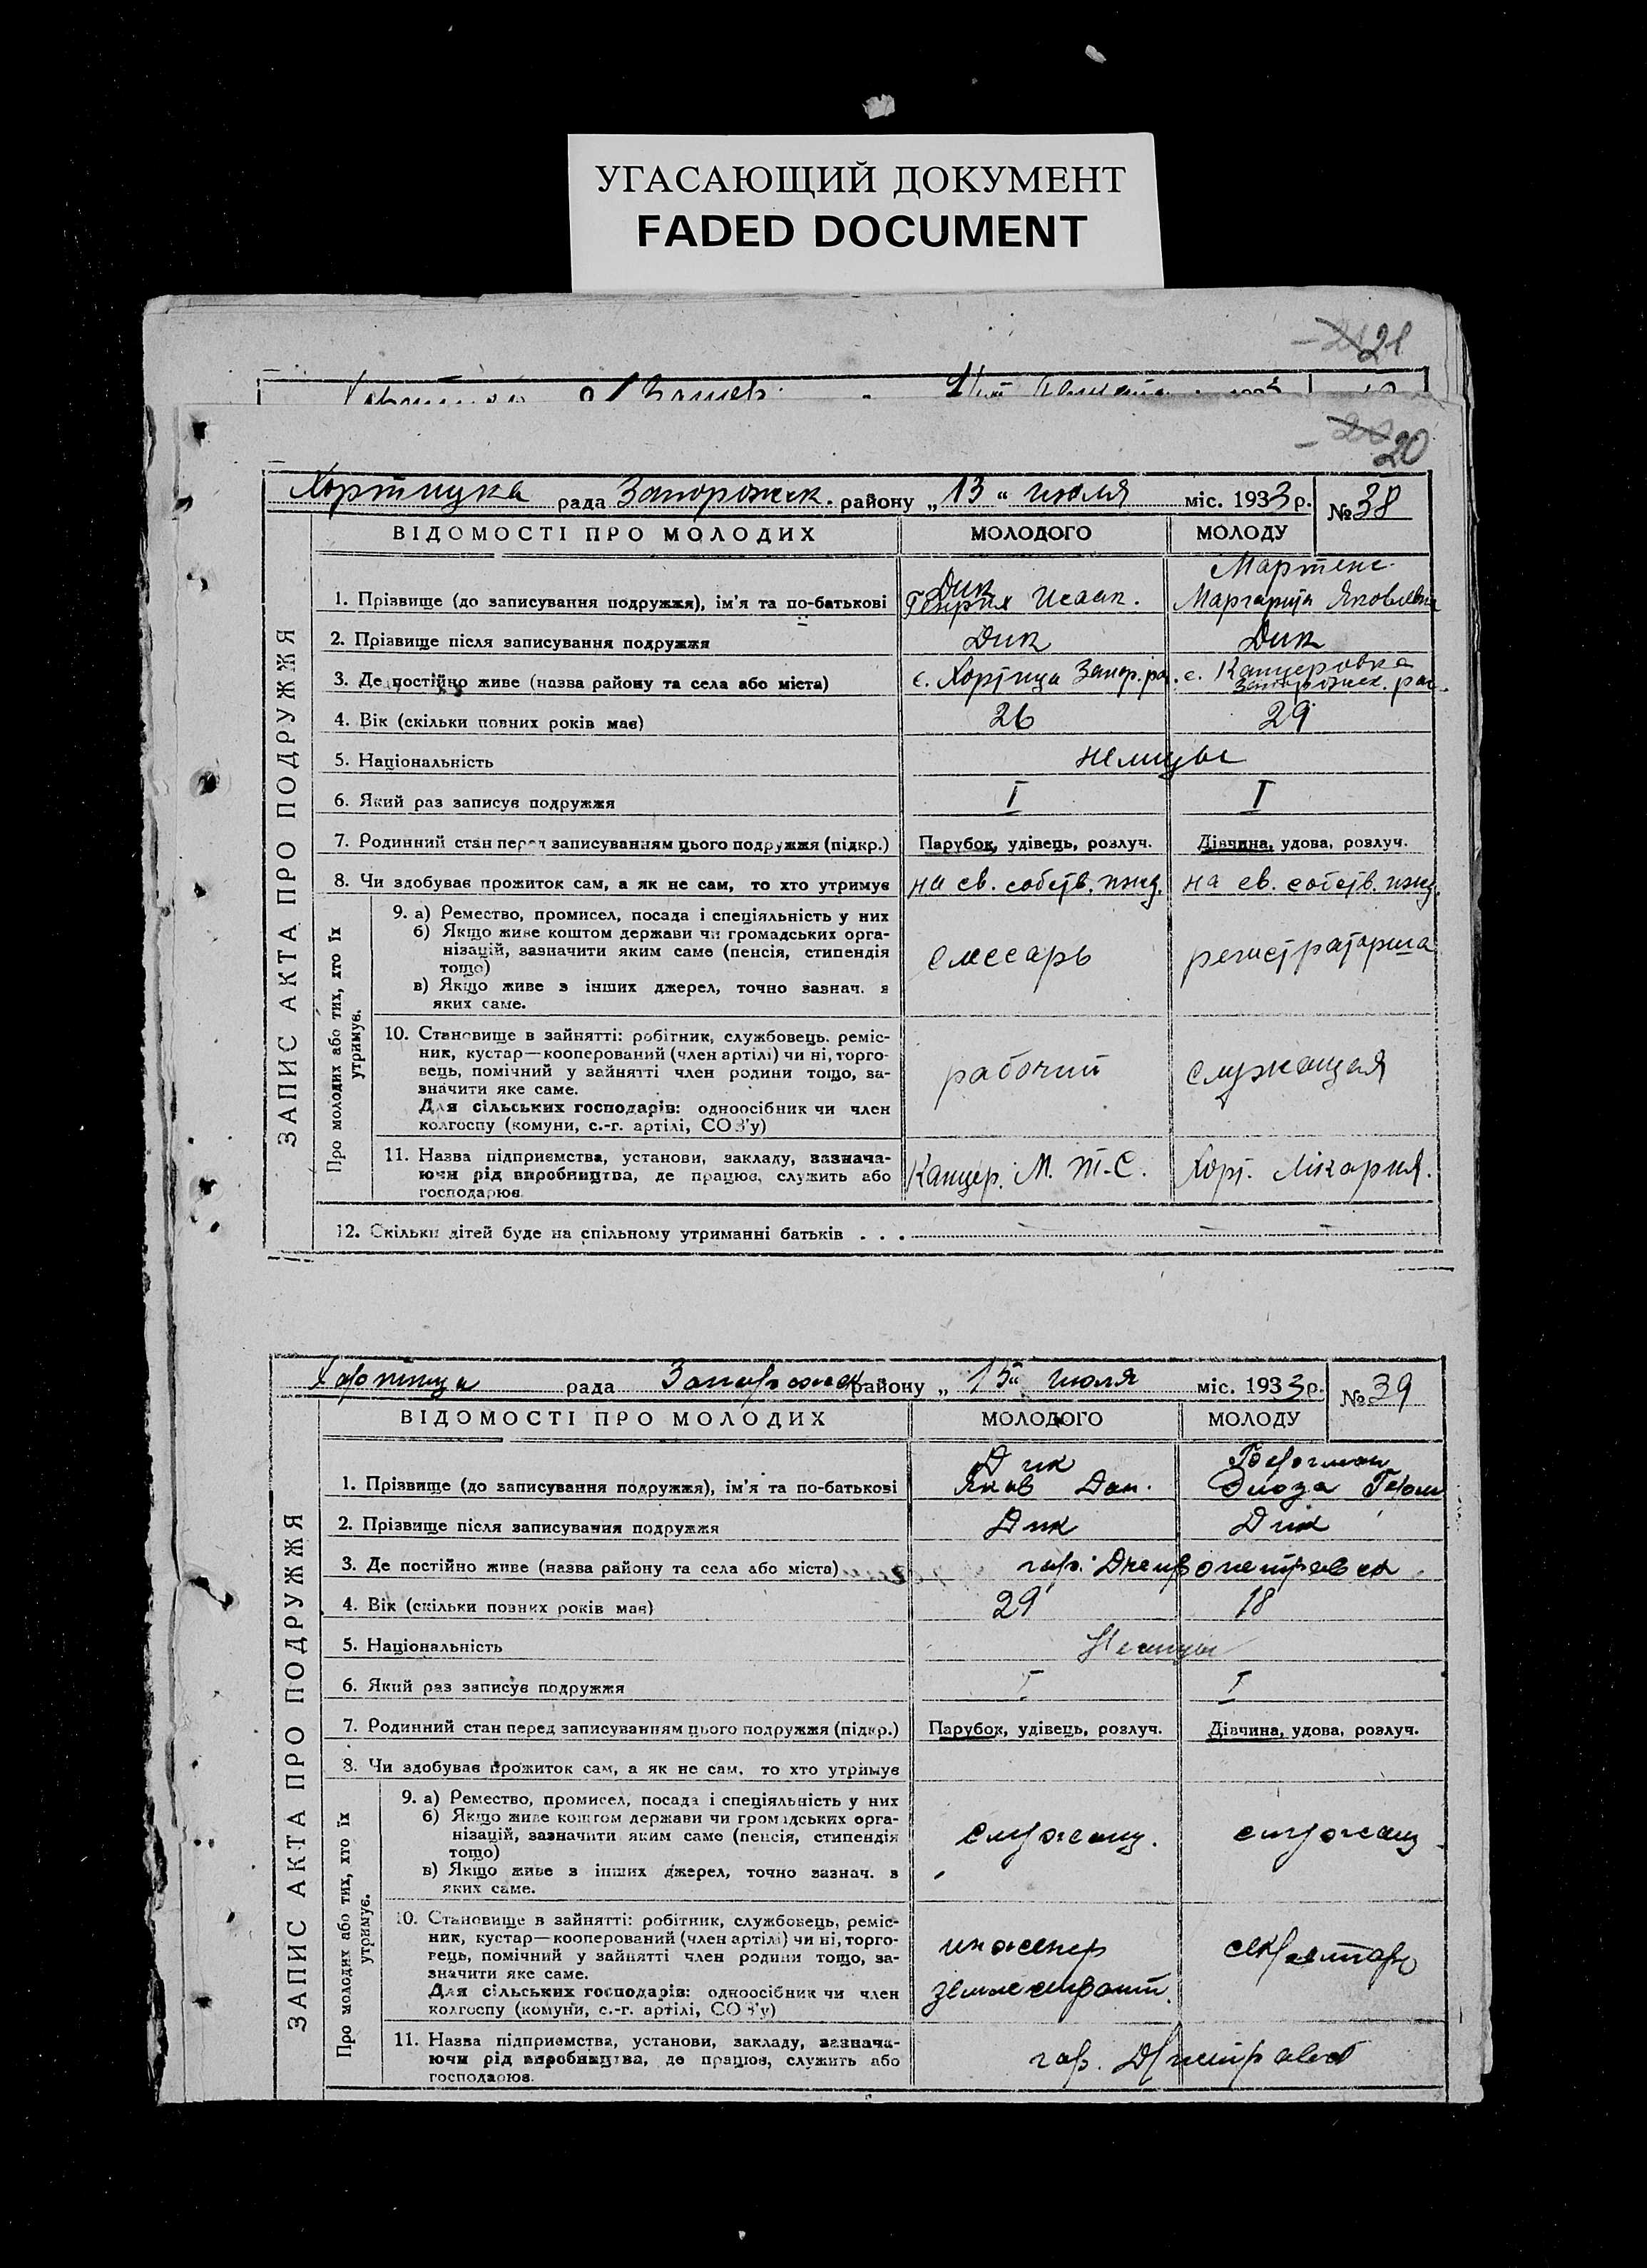 УГАСАЮЩИЙ ДОКУМЕНТ
FADED DOCUMENT
21
20
Хортицка рада Запорожск. району „13“ июля міс. 1933 р. № 38
ВІДОМОСТІ ПРО МОЛОДИХ МОЛОДОГО МОЛОДУ
ЗАПИС АКТА ПРО ПОДРУЖЖЯ
1. Прізвище (до записування подружжя), ім'я та по-батькові Дик Генрих Исаак. Мартенс Маргарита Яковлевна
2. Прізвище після записування подружжя Дик Дик
3. Де постійно живе (назва району та села або міста) с. Хортица Запор. ра. с. Канцеровка Запорожск. рай.
4. Вік (скільки повних років має) 26 29
5. Національність немцы
6. Який раз записує подружжя I I
7. Родинний стан перед записуванням цього подружжя (підкр.) Парубок, удівець, розлуч. Дівчина, удова, розлуч.
8. Чи здобуває прожиток сам, а як не сам, то хто утримує на св. собств. ижд. на св. собств. ижд.
Про молодих або тих, хто їх утримує.
9. а) Ремество, промисел, посада і спеціяльність у них
б) Якщо живе коштом держави чи громадських орга-
нізацій, зазначити яким саме (пенсія, стипендія
тощо) слесарь регистраторша
в) Якщо живе з інших джерел, точно зазнач. з
яких саме.
10. Становище в зайнятті: робітник, службовець, реміс-
ник, кустар—кооперований (член артілі) чи ні, торго-
вець, помічний у зайнятті член родини тощо, за-
значити яке саме. рабочий служащая
Для сільських господарів: одноосібник чи член
колгоспу (комуни, с.-г. артілі, СОЗ'у)
11. Назва підприємства, установи, закладу, зазнача-
ючи рід виробництва, де працює, служить або Канцер. М. Т-С. Хорт. Лікарня.
господарює.
12. Скільки дітей буде на спільному утриманні батьків . . .
Хортица рада Запорожск району „15“ июля міс. 1933 р. № 39
ВІДОМОСТІ ПРО МОЛОДИХ МОЛОДОГО МОЛОДУ
ЗАПИС АКТА ПРО ПОДРУЖЖЯ
1. Прізвище (до записування подружжя), ім'я та по-батькові Дик Яков Дав.
2. Прізвище після записування подружжя Дик Дик
3. Де постійно живе (назва району та села або міста) гор. Днепропетровск
4. Вік (скільки повних років має) 29 18
5. Національність Немцы
6. Який раз записує подружжя I I
7. Родинний стан перед записуванням цього подружжя (підкр.) Парубок, удівець, розлуч. Дівчина, удова, розлуч.
8. Чи здобуває прожиток сам, а як не сам, то хто утримує
Про молодих або тих, хто їх утримує.
9. а) Ремество, промисел, посада і спеціяльність у них
б) Якщо живе коштом держави чи громадських орга-
нізацій, зазначити яким саме (пенсія, стипендія
тощо) служащ. служащ.
в) Якщо живе з інших джерел, точно зазнач. з
яких саме.
10. Становище в зайнятті: робітник, службовець, реміс-
ник, кустар—кооперований (член артілі) чи ні, торго-
вець, помічний у зайнятті член родини тощо, за- инженер секретарь
значити яке саме.
Для сільських господарів: одноосібник чи член
колгоспу (комуни, с.-г. артілі, СОЗ'у)
11. Назва підприємства, установи, закладу, зазнача-
ючи рід виробництва, де працює, служить або гор.
господарює.